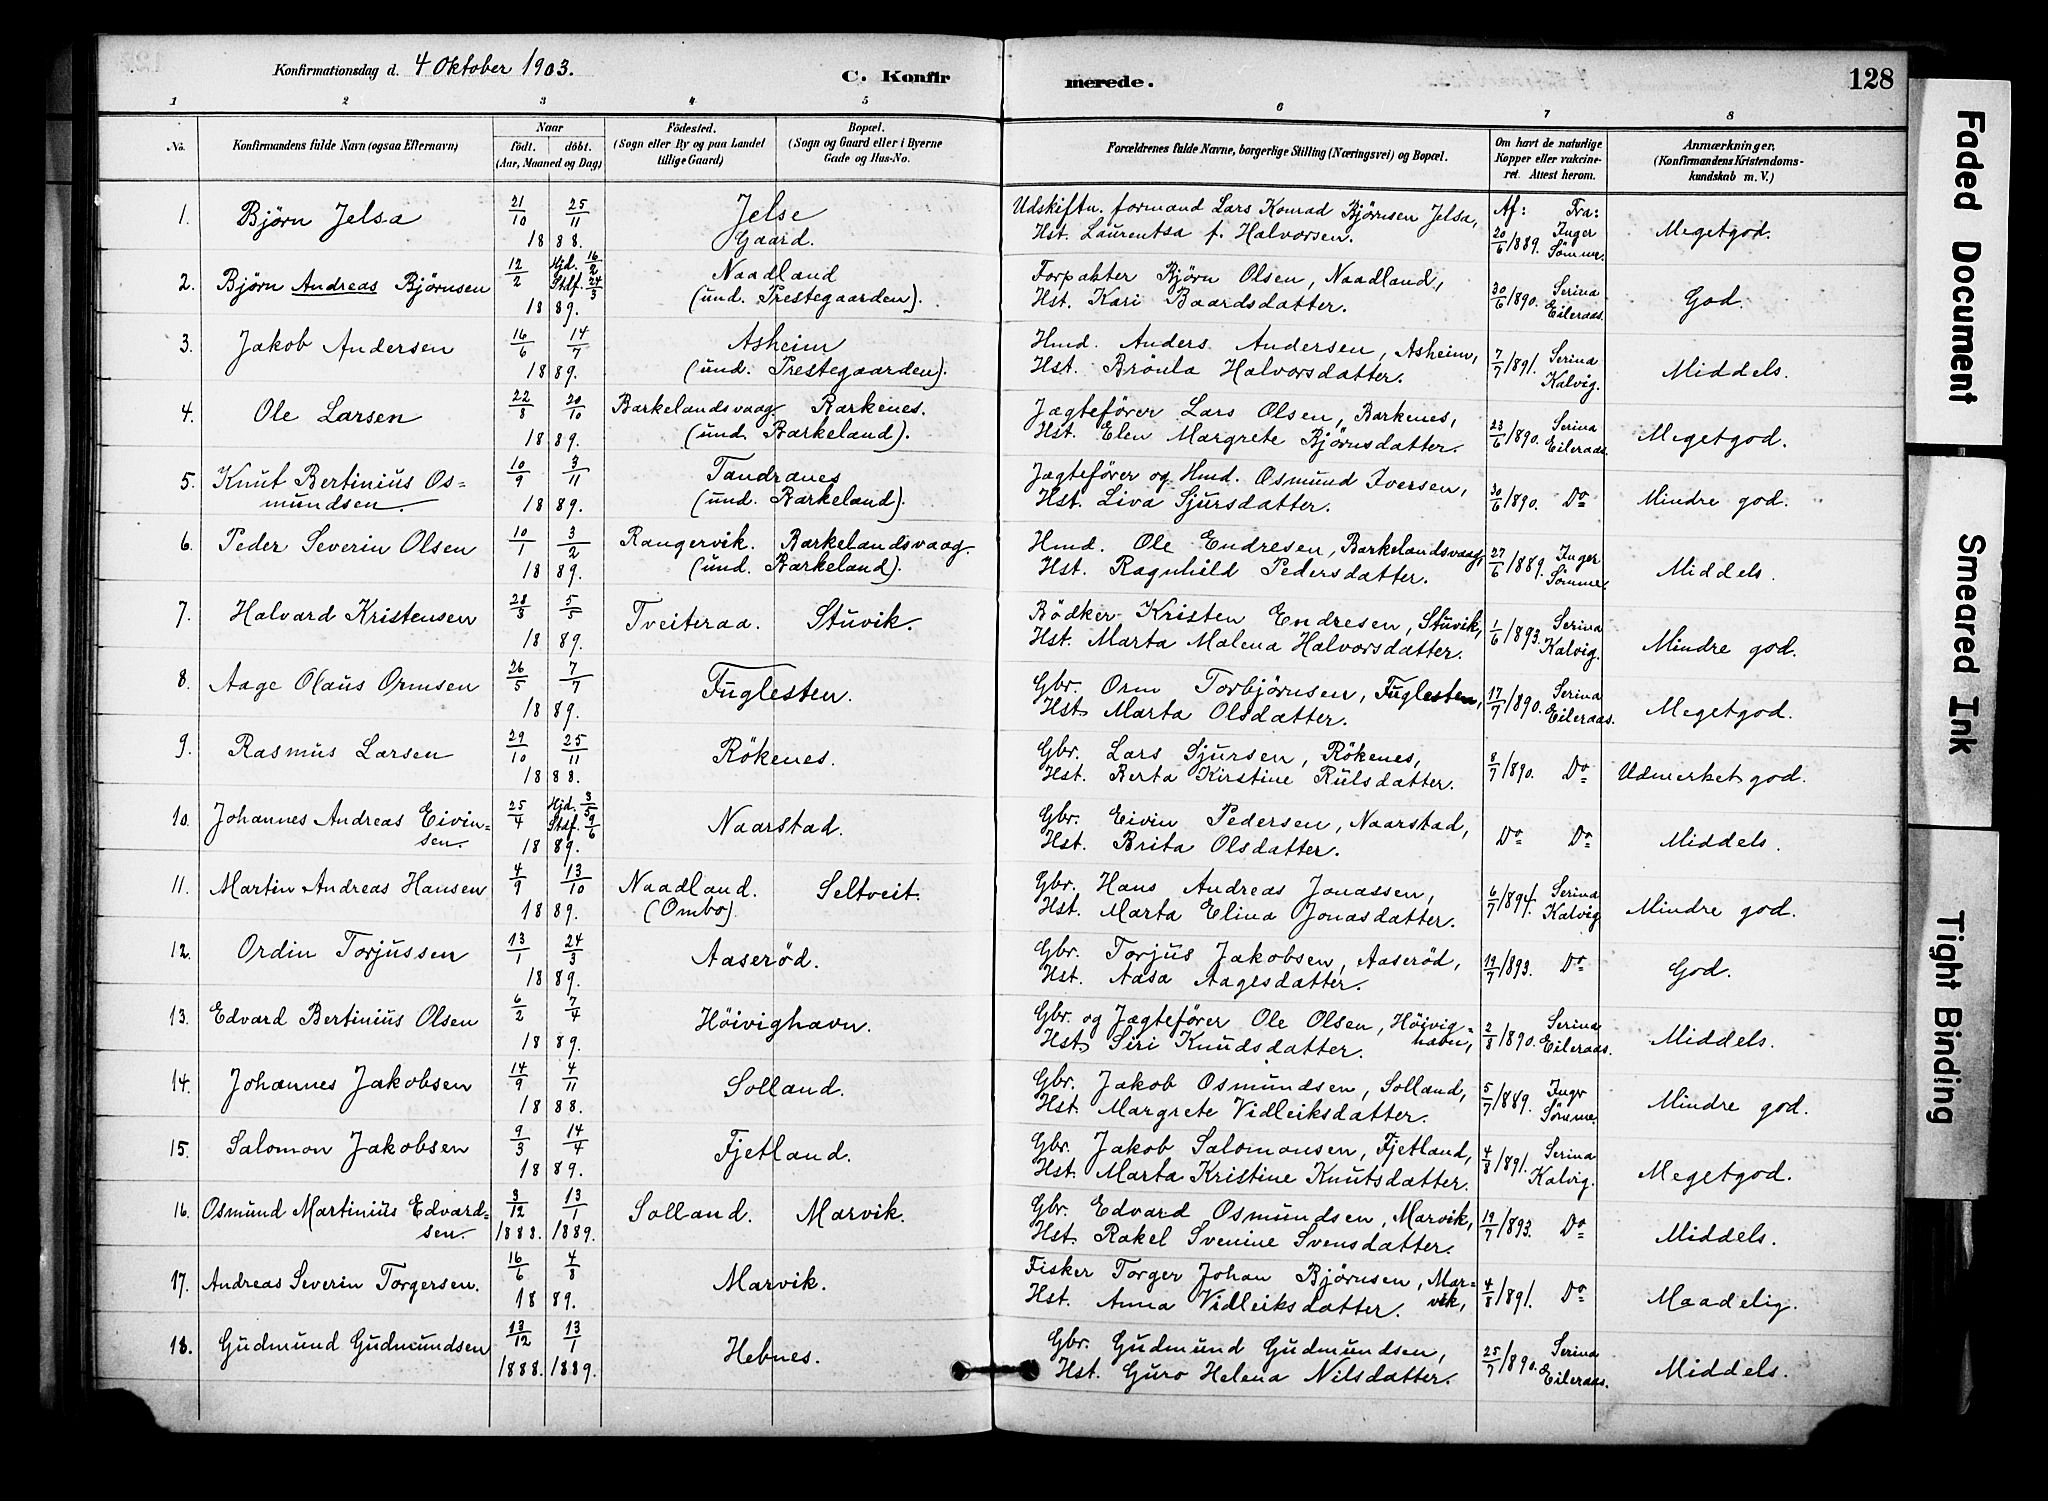 Konfirmationsdag d. 4 Oktober 1903.
C. Konfir merede.
128
1 2 3 4 5 6 7 8
No.
Konfirmandens fulde Navn (ogsaa Efternavn)
Naar
født. døbt.
(Aar, Maaned og Dag)
Födested.
(Sogn eller By og paa Landet
tillige Gaard)
Bopæl.
(Sogn og Gaard eller i Byerne
Gade og Hus-No.
Forældrenes fulde Navne, borgerlige Stilling (Næringsvei) og Bopæl.
Om havt de naturlige
Kopper eller vakcine-
ret. Attest herom.
Anmærkninger.
(Konfirmandens Kristendoms-
kundskab m. V.)
1. Bjørn Jelsa 21/10 25/11 1888. Jelse Gaard.
Udskiftn. formand Lars Konrad Bjørnsen Jelsa,
Hst. Laurentsa f. Halvorsen.
Af: Fra:
20/6/889. Inger Sömme. Megetgod.
2. Bjørn Andreas Bjørnsen 12/2 Hjd. 16/2 Stdf. 24/3 1889. Naadland
(und. Prestegaarden).
Forpakter Bjørn Olsen, Naadland,
Hst. Kari Baardsdatter.
30/6/890. Serina Eileraas. God.
3. Jakob Andersen 16/6 14/7 1889. Asheim
(und. Prestegaarden).
Hmd. Anders Andersen, Asheim,
Hst. Brönla Halvorsdatter.
7/7/891. Serina Kalvig. Middels.
4. Ole Larsen 22/8 20/10 1889. Barkelandsvaag. Barkenes.
(und. Barkeland).
Jægtefører Lars Olsen, Barkenes,
Hst. Elen Margrete Bjørnsdatter.
23/6/890. Serina Eileraas. Megetgod.
5. Knut Bertinius Os=
mundsen. 10/9 3/11 1889. Tandranes
(und. Barkeland).
Jægtefører og Hmd. Osmund Iversen,
Hst. Liva Sjursdatter.
30/6/890. Do Mindre god.
6. Peder Severin Olsen 10/1 3/2 1889. Rangervik. Barkelandsvaag.
(und. Barkeland).
Hmd. Ole Endresen, Barkelandsvaag,
Hst. Ragnhild Pedersdatter.
27/6/889. Inger Sömme. Middels.
7. Halvard Kristensen 28/3 5/5 1889. Tveiteraa. Stuvik.
Bödker Kristen Endresen, Stuvik,
Hst. Marta Malena Halvorsdatter.
1/6/893. Serina Kalvig. Mindre god.
8. Aage Olaus Ormsen 26/5 7/7 1889. Fuglesten.
Gbr. Orm Torbjørnsen, Fuglesten,
Hst. Marta Olsdatter.
17/7/890. Serina Eileraas. Megetgod.
9. Rasmus Larsen 29/10 25/11 1888. Rökenes.
Gbr. Lars Sjursen, Rökenes,
Hst. Berta Kirstine Rulsdatter.
8/7/890. Do Udmerket god.
10. Johannes Andreas Eivin=
sen. 25/4 Hjd. 3/5 Stdf. 9/6 1889. Naarstad.
Gbr. Eivin Pedersen, Naarstad,
Hst. Brita Olsdatter.
Do Do Middels.
11. Martin Andreas Hansen 4/9 13/10 1889. Naadland. Seltveit.
(Ombo).
Gbr. Hans Andreas Jonassen,
Hst. Marta Elina Jonasdatter.
6/7/894. Serina Kalvig Mindre god.
12. Ordin Torjussen 13/1 24/3 1889. Aaserød.
Gbr. Torjus Jakobsen, Aaserød,
Hst. Aasa Aagesdatter.
19/7/893. Do God.
13. Edvard Bertinius Olsen 6/2 7/4 1889. Höivighavn.
Gbr. og Jægtefører Ole Olsen, Höivig=
havn,
Hst. Siri Knudsdatter.
2/8/890. Serina Eileraas. Middels.
14. Johannes Jakobsen 14/9 4/11 1888. Solland.
Gbr. Jakob Osmundsen, Solland,
Hst. Margrete Vidleiksdatter.
5/7/889. Inger Sömme. Mindre god.
15. Salomon Jakobsen 9/3 14/4 1889. Fjetland.
Gbr. Jakob Salomonsen, Fjetland,
Hst. Marta Kristine Knutsdatter.
4/8/891. Serina Kalvig. Megetgod.
16. Osmund Martinius Edvard=
sen. 3/12 13/1 1888. 1889. Solland. Marvik.
Gbr. Edvard Osmundsen, Marvik,
Hst. Rakel Svenine Svensdatter.
19/7/893. Do Middels.
17. Andreas Severin Torgersen. 16/6 4/8 1889. Marvik.
Fisker Torger Johan Bjørnsen, Mar=
vik,
Hst. Anna Vidleiksdatter.
4/8/891. Do Maadelig.
18. Gudmund Gudmundsen 13/12 13/1 1888. 1889. Hebnes.
Gbr. Gudmund Gudmundsen,
Hst. Guro Helena Nilsdatter.
25/7/890. Serina Eileraas. Middels.
Faded Document
Smeared Ink
Tight Binding